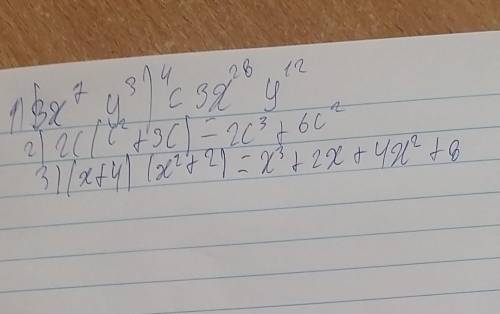 1) (3x⁷ y³)⁴ = 3x²⁸ y¹²
2) 2c(c² + 3c) = 2c³ + 6c²
3) (x+4) (x²+2) = x³ + 2x + 4x² + 8